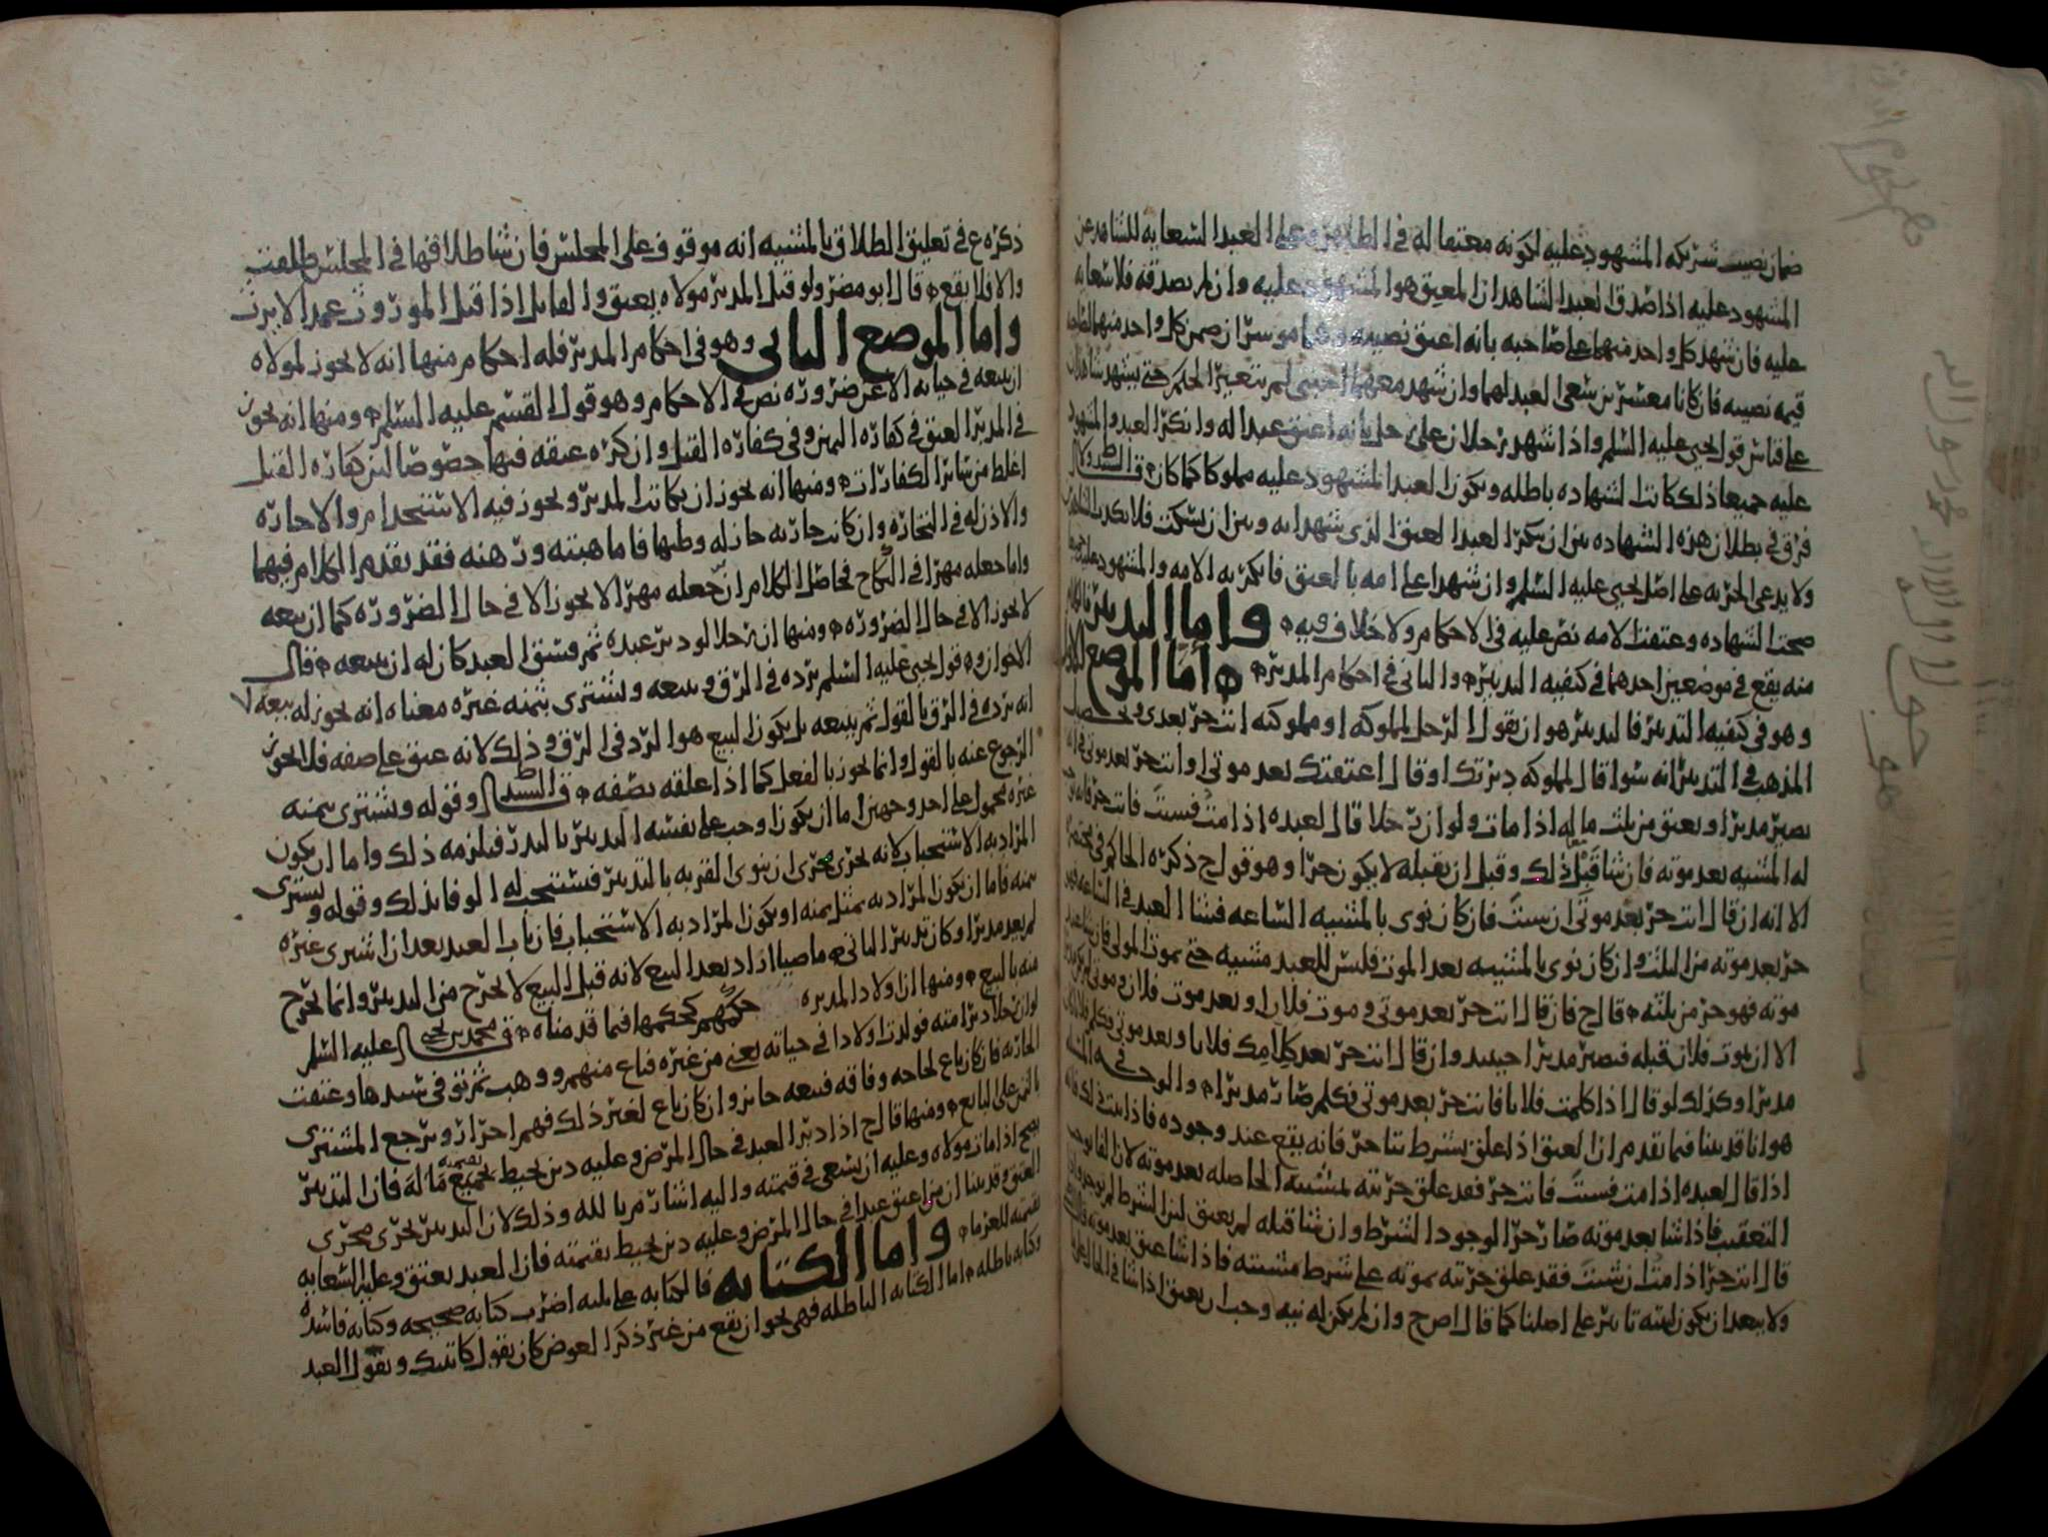 ضمان نصيب شريكه المشهود عليه لكونه معتقا له في الظاهر وعلى العبد السعاية للشاهد عن
المشهود عليه اذا صدق العبد الشاهد ان المعتق هو المشهود عليه وان لم يصدقه فلا سعاية
عليه فان شهد كل واحد منهما على صاحبه بانه اعتق نصيبه وهما موسران ضمن كل واحد منهما لصاحبه
قيمة نصيبه فان كانا معسرين سعى العبد لهما وان شهد معهما اجنبي لم يتغير الحكم حتى يشهد شاهدان
على قياس قول يحيى عليه السلم واذا شهد رجلان على رجل بانه اعتق عبدا له وانكر العبد والمشهود
عليه جميعا ذلك كانت الشهادة باطلة ويكون العبد المشهود عليه مملوكا كما كان قال السيد ولا
فرق في بطلان هذه الشهادة بين ان ينكر العبد العتق الذي شهدا به وبين ان يسكت فلا يكذب الشاهدين
ولا يدعي الحرية على اصل يحيى عليه السلم وان شهدا على امة بالعتق فانكرته الامة والمشهود عليه جميعا
صحت الشهادة وعتقت الامة نص عليه في الاحكام ولا خلاف فيه واما التدبير فالكلام
منه يقع في موضعين احدهما في كيفية التدبير والثاني في احكام المدبر اما الموضع الاول
وهو في كيفية التدبير فالتدبير هو ان يقول الرجل لمملوكه او مملوكته انت حر بعدي وتحصيل
المذهب في التدبير انه سوا قال لمملوكه دبرتك او قال اعتقتك بعد موتي او انت حر بعد موتي فانه
يصير مدبرا ويعتق من ثلث ماله اذا مات ولو ان رجلا قال لعبده اذا مت فشئت فانت حر فان
له المشية بعد موته فان شا قبل ذلك وقبل ان يقبله لا يكون حرا وهو قول ح ذكره الحاكم في مختصره
الا انه ان قال انت حر بعد موتي ان شئت فان كان نوى بالمشية الساعة فشا العبد في الساعة فهو
حر بعد موته من الثلث وان كان نوى بالمشية بعد الموت فليس للعبد مشية حتى يموت المولى فان شا بعد
موته فهو حر من ثلثه قال ح فان قال انت حر بعد موتي وموت فلان او بعد موت فلان وموتي لم يكن مدبرا
الا ان يموت فلان قبله فيصير مدبرا حينئذ وان قال انت حر بعد كلامك فلانا وبعد موتي فكلم فلانا كان
مدبرا وكذلك لو قال اذا كلمت فلانا فانت حر بعد موتي فكلمه صار مدبرا والوجه في هذه المسئلة
هو انا قد بينا فيما تقدم ان العتق اذا علق بشرط متاخر فانه يقع عند وجوده فاذا ثبت ذلك فانه
اذا قال لعبده اذا مت فشئت فانت حر فقد علق حريته بمشيته الحاصلة بعد موته لان الفا يوجب
التعقيب فاذا شا بعد موته صار حرا لوجود الشرط وان شا قبله لم يعتق لان الشرط لم يوجد وان
قال انت حر اذا مت ان شئت فقد علق حريته بموته على شرط مشيته فاذا شا عتق بعد موته
ولا يبعد ان يكون لنيته تاثير على اصلنا كما قال اص ح وان لم يكن له نية وجب ان يعتق اذا شا في الحال
ذكره ع في تعليق الطلاق بالمشية انه موقوف على المجلس فان شا طلاقها في المجلس طلقت
والا فلا يقع قال ابو مضر ولو قتل المدبر مولاه يعتق والقاتل اذا قتل الموروث عمدا لا يرث
واما الموضع الثاني وهو في احكام المدبر فله احكام منها انه لا يجوز لمولاه
ان يبيعه في حياته الا عن ضرورة نص في الاحكام وهو قول القسم عليه السلم ومنها انه يجوز
في المدبر العتق في كفارة اليمين وفي كفارة القتل وان كره عتقه فيها خصوصا لان كفارة القتل
اغلظ من سائر الكفارات ومنها انه يجوز ان يكاتب المدبر ويجوز فيه الاستخدام والاجارة
والاذن له في التجارة وان كانت جارية جاز له وطيها فاما هبته ورهنه فقد تقدم الكلام فيهما
واما جعله مهرا في النكاح فحاصل الكلام ان جعله مهرا لا يجوز الا في حال الضرورة كما ان بيعه
لا يجوز الا في حال الضرورة ومنها ان رجلا لو دبر عبده ثم فسق العبد كان له ان يبيعه قال
الاخوان وقول يحيى عليه السلم يرده في الرق ويبيعه ويشتري بثمنه غيره معناه انه يجوز له بيعه لا
انه يرده في الرق بالقول ثم يبيعه بل يكون البيع هو الرد في الرق وذلك لانه عتق على صفة فلا يجوز
الرجوع عنه بالقول وانما يجوز بالفعل كما اذا علقه بصفة قال السيد وقوله ويشتري بثمنه
غيره محمول على احد وجهين اما ان يكون اوجب على نفسه التدبير بالنذر فيلزمه ذلك واما ان يكون
المراد به الاستحباب لانه يجري مجرى ان ينوي القربة بالتدبير فيستحب له الوفا بذلك وقوله ويشتري
بثمنه فاما ان يكون المراد به بمثل ثمنه او يكون المراد به الاستحباب فان تاب العبد بعد ان اشترى غيره
لم يعد مدبرا وكان تدبير الثاني ماضيا اذا د بعد البيع لانه قبل البيع لا يخرج من التدبير وانما يخرج
منه بالبيع ومنها ان اولاد المدبرة حكمهم كحكمها فيما قدمناه قال محمد بن يحيى عليه السلم
لو ان رجلا دبر امته فولدت اولادا في حياته يعني من غيره فباع منهم ووهب ثم توفي سيدها وعتقت
الجارية فان كان باع لحاجة وفاقة فبيعه جائز وان كان باع لغير ذلك فهم احرار ويرجع المشتري
بالثمن على البائع ومنها قال ح اذا دبر العبد في حال المرض وعليه دين يحيط بجميع ماله فان التدبير
يصح اذا مات مولاه وعليه ان يسعى في قيمته واليه اشار م بالله وذلك لان التدبير يجري مجرى
العتق وقد بينا ان من اعتق عبدا في حال المرض وعليه دين يحيط بقيمته فان العبد يعتق وعليه السعاية
بقيمته للغرما واما الكتابة فالكتابة على ثلثة اضرب كتابة صحيحة وكتابة فاسدة
وكتابة باطلة اما الكتابة الباطلة فهي نحو ان يقع من غير ذكر العوض كان يقول كاتبتك ويقول العبد